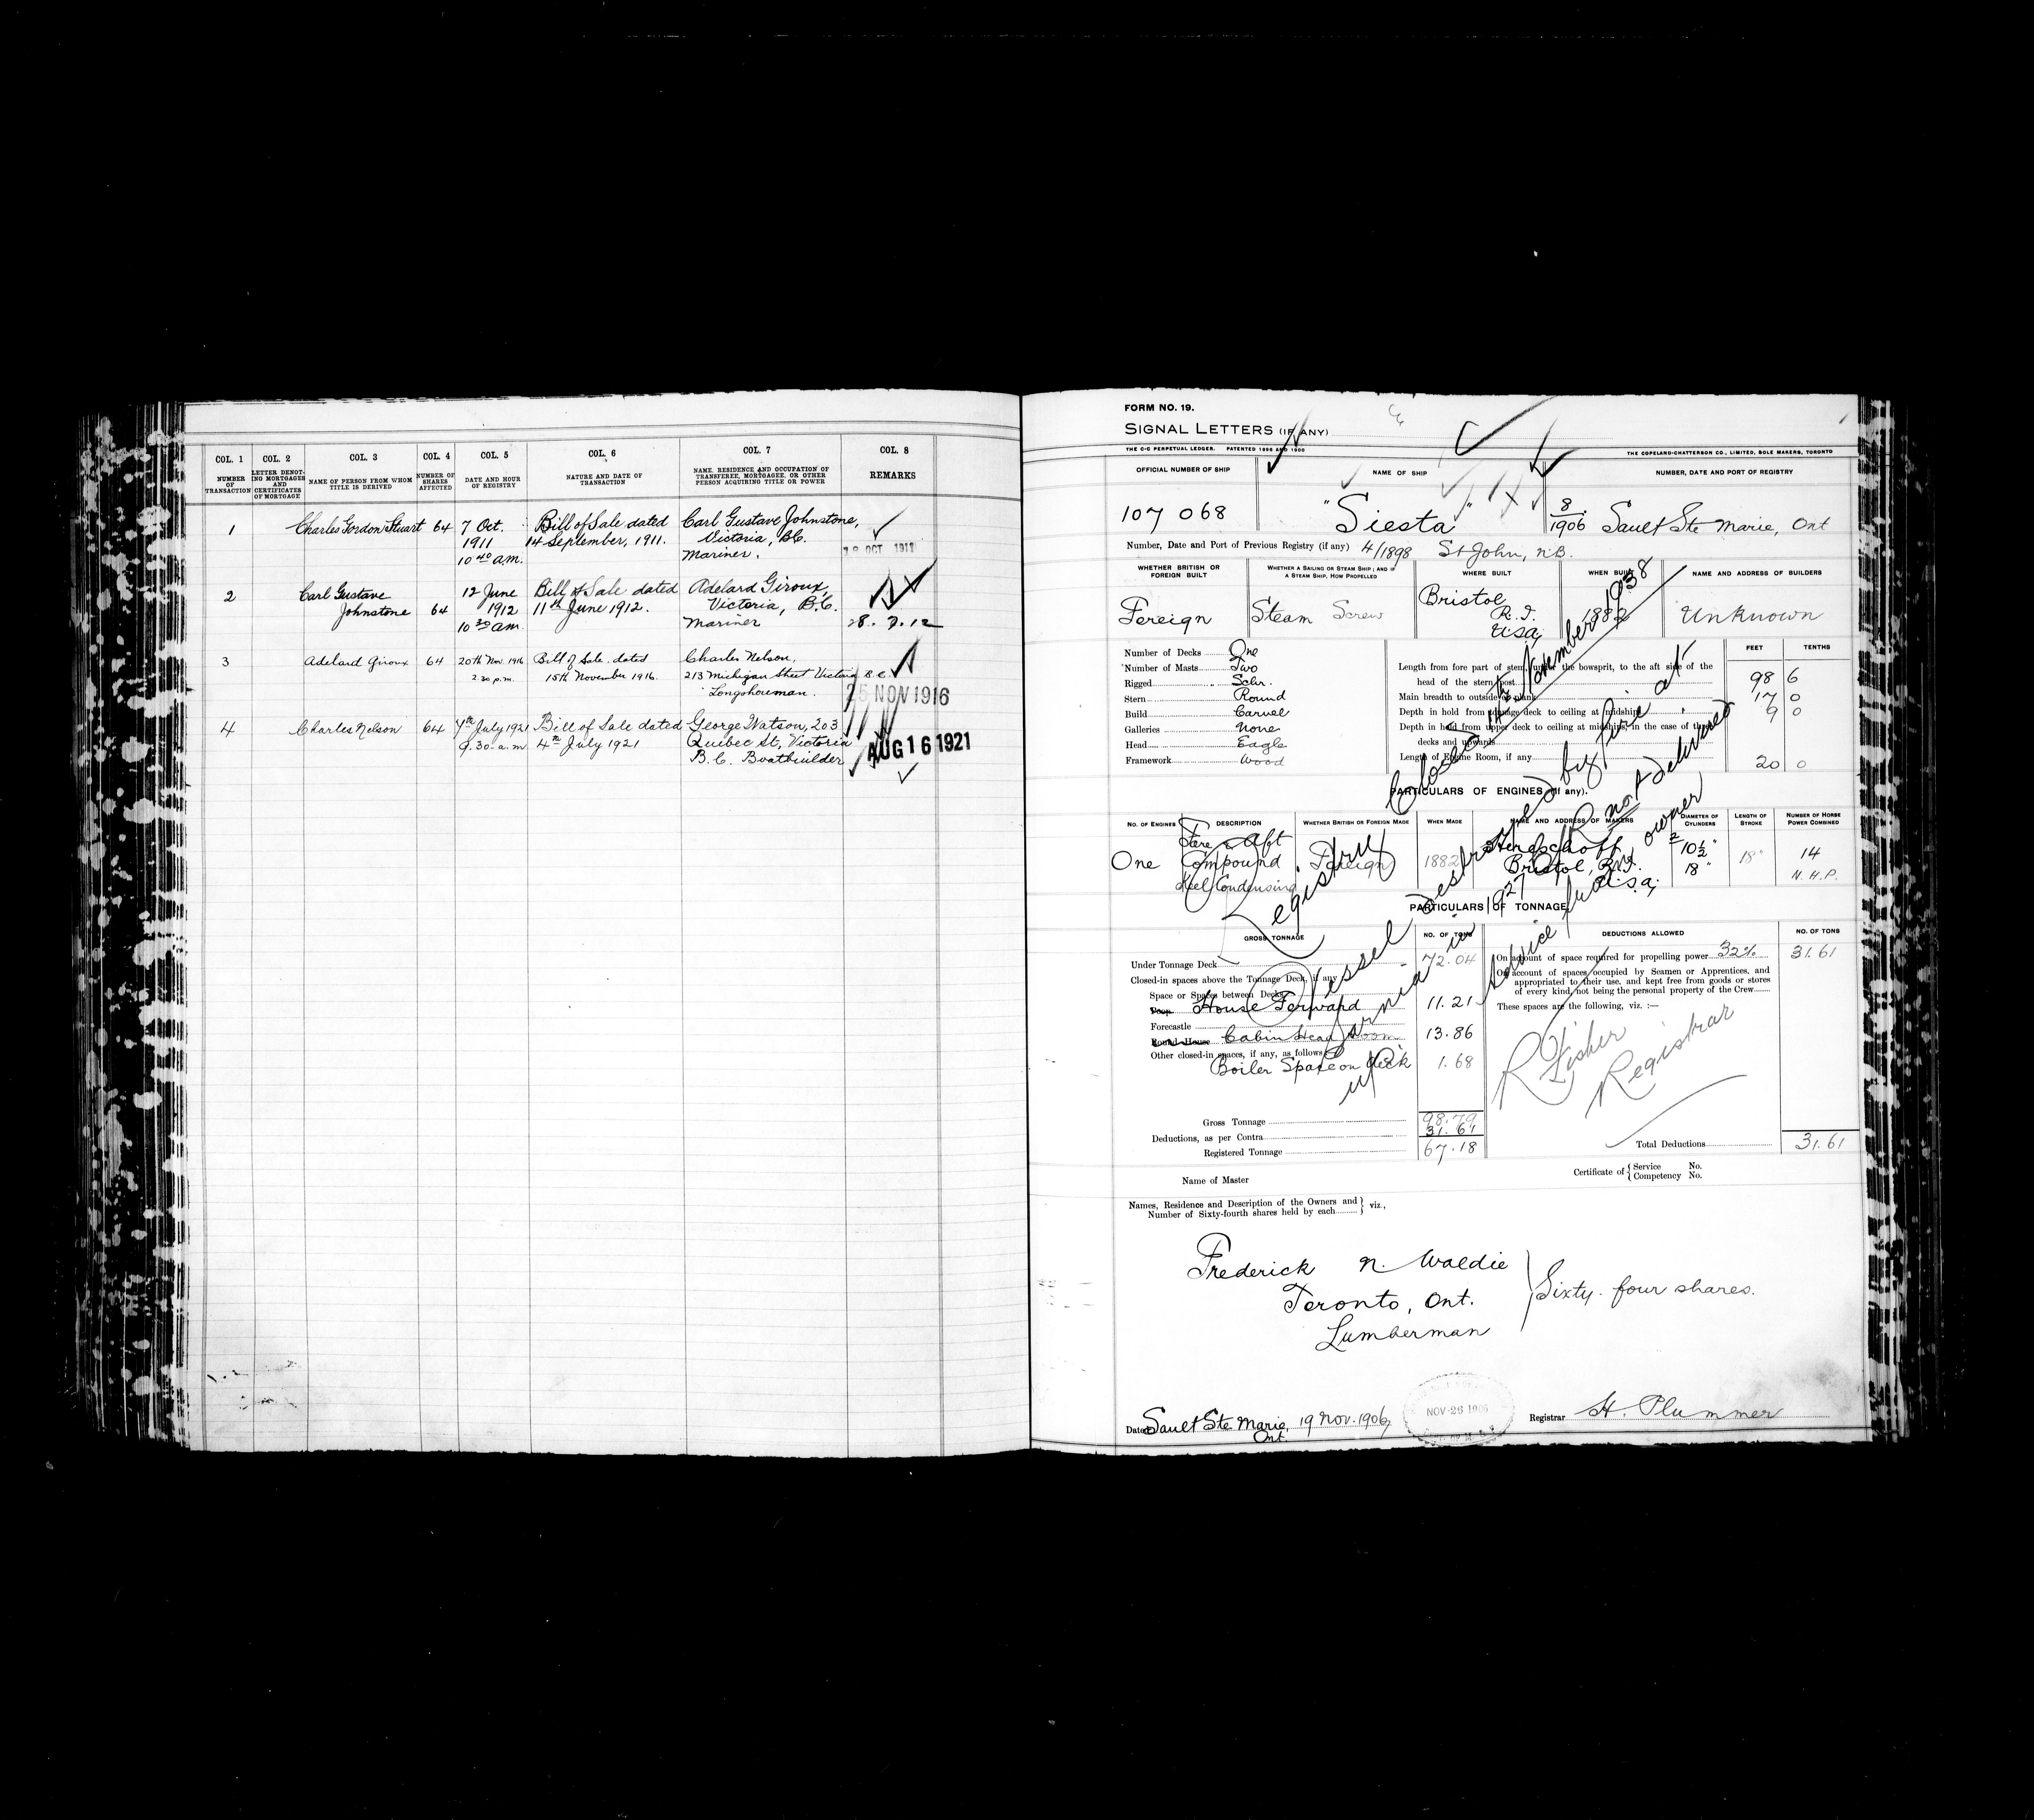 COL. 1
COL. 2
COL. 3
COL. 4
COL. 5
COL. 6
COL. 7
COL. 8
NUMBER OF TRANSACTION
LETTER DENOTING MORTGAGES AND CERTIFICATES OF MORTGAGE
NAME OF PERSON FROM WHOM TITLE IS DERIVED
NUMBER OF SHARES AFFECTED
DATE AND HOUR OF REGISTRY
NATURE AND DATE OF TRANSACTION
NAME, RESIDENCE AND OCCUPATION OF TRANSFEREE, MORTGAGEE, OR OTHER PERSON ACQUIRING TITLE OR POWER
REMARKS
1 Charles Gordon Stuart 64 7 Oct. Bill of Sale dated Carl Gustave Johnstone,
1911 14 September, 1911. Victoria, B.C.
10 40 a.m. Mariner. OCT 1911
2 Carl Gustave 12 June Bill of Sale dated Adelard Giroux,
Johnstone 64 1912 11th June 1912. Victoria, B.C.
10 30 am. Mariner 28. 7. 12
3 Adelard Giroux 64 20th Nov. 1916 Bill of Sale dated Charles Nelson,
2.30 p.m. 15th November 1916. 213 Michigan Street Victoria B.C.
Longshoreman. 25 NOV 1916
4 Charles Nelson 64 7th July 1921 Bill of Sale dated George Watson, 203
9.30 a.m 4th July 1921 Quebec St, Victoria
B.C. Boatbuilder AUG 16 1921
FORM NO. 19.
SIGNAL LETTERS (IF ANY)
THE C-C PERPETUAL LEDGER. PATENTED 1896 AND 1900
THE COPELAND-CHATTERSON CO., LIMITED, SOLE MAKERS, TORONTO
OFFICIAL NUMBER OF SHIP
NAME OF SHIP
NUMBER, DATE AND PORT OF REGISTRY
107 068 "Siesta" 8/1906 Sault Ste Marie, Ont
Number, Date and Port of Previous Registry (if any) 4/1898 St John, N.B.
WHETHER BRITISH OR FOREIGN BUILT
WHETHER A SAILING OR STEAM SHIP; AND IF A STEAM SHIP, HOW PROPELLED
WHERE BUILT
WHEN BUILT
NAME AND ADDRESS OF BUILDERS
Foreign Steam Screw Bristol R.I. USA 1882 Unknown
Number of Decks One
Number of Masts Two
Rigged Schr.
Stern Round
Build Carvel
Galleries None
Head Eagle
Framework Wood
FEET TENTHS
Length from fore part of stem, under the bowsprit, to the aft side of the
head of the stern post 98 6
Main breadth to outside of plank 17 0
Depth in hold from tonnage deck to ceiling at midships 9 0
Depth in hold from upper deck to ceiling at midships, in the case of three
decks and upwards
Length of Engine Room, if any 20 0
PARTICULARS OF ENGINES (if any).
NO. OF ENGINES
DESCRIPTION
WHETHER BRITISH OR FOREIGN MADE
WHEN MADE
NAME AND ADDRESS OF MAKERS
DIAMETER OF CYLINDERS
LENGTH OF STROKE
NUMBER OF HORSE POWER COMBINED
Fore & Aft Herreschoff 2
One Compound Foreign 1882 Bristol, R.I. 10½" 18" 14
Keel Condensing U.S.a. 18" N.H.P.
PARTICULARS OF TONNAGE
GROSS TONNAGE
NO. OF TONS
DEDUCTIONS ALLOWED
NO. OF TONS
Under Tonnage Deck 72.04
Closed-in spaces above the Tonnage Deck, if any
Space or Spaces between Decks
Poop House Forward 11.21
Forecastle
Round-House Cabin Head Room 13.86
Other closed-in spaces, if any, as follows
Boiler Space on deck 1.68
Gross Tonnage 98.79
Deductions, as per Contra 31.61
Registered Tonnage 67.18
On account of space required for propelling power 32% 31.61
On account of spaces occupied by Seamen or Apprentices, and
appropriated to their use, and kept free from goods or stores
of every kind, not being the personal property of the Crew
These spaces are the following, viz. :—
Total Deductions 31.61
Registry Closed 14th November 1938
Vessel destroyed by fire at
Sarnia in 1927
not delivered
up
Advice from owner
R Fisher
Registrar
Name of Master
Certificate of Service No.
Competency No.
Names, Residence and Description of the Owners and
Number of Sixty-fourth shares held by each viz.,
Frederick N. Waldie
Toronto, Ont. Sixty-four shares.
Lumberman
Dated Sault Ste Marie, 19 Nov. 1906
Ont.
NOV 26 1906
Registrar H. Plummer